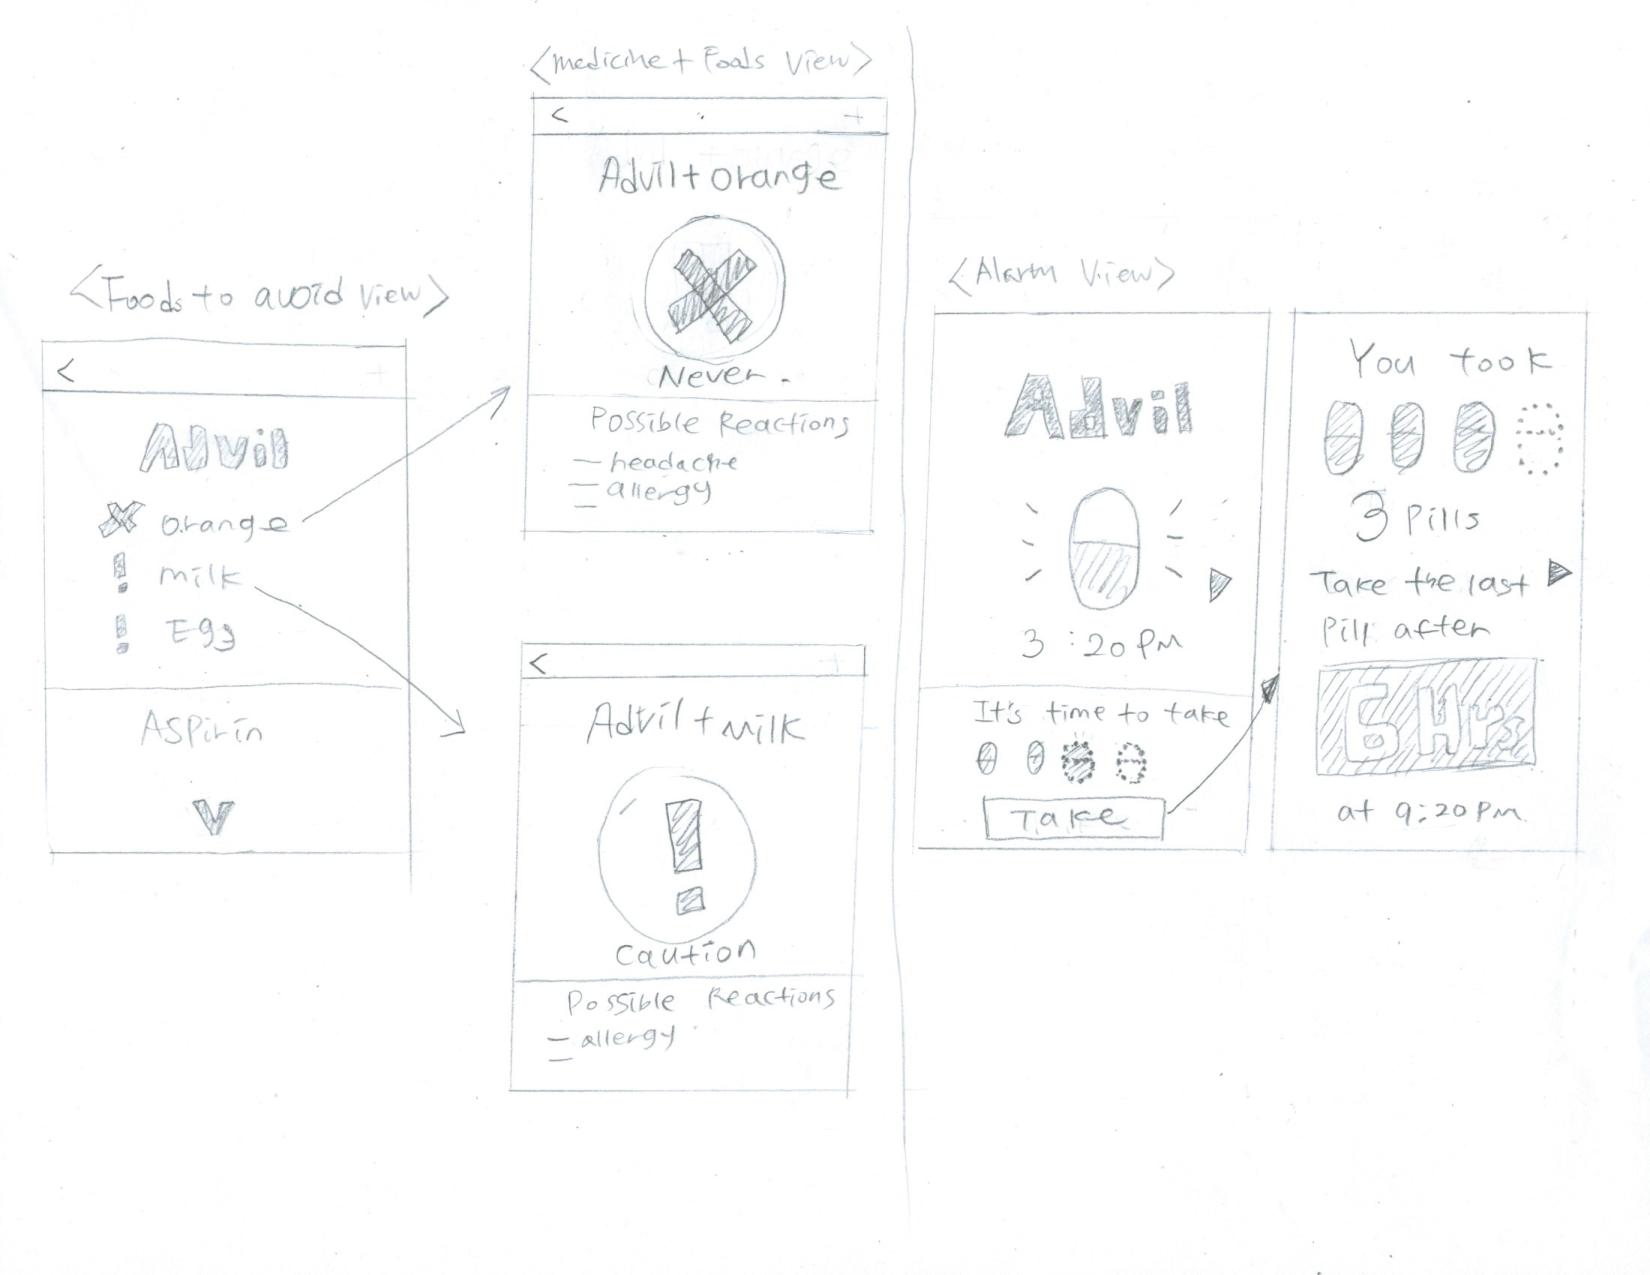 <Foods to avoid view>
<
Advil
orange
! milk
! Egg
Aspirin
<medicine + Foods View>
< +
Advil + orange
Never.
Possible Reactions
- headache
- allergy
-
< +
Advil + milk
!
Caution
Possible Reactions
- allergy
-
<Alarm View>
Advil
3:20 PM
It's time to take
Take
You took
3 Pills
Take the last
Pill after
6 Hrs
at 9:20 PM.